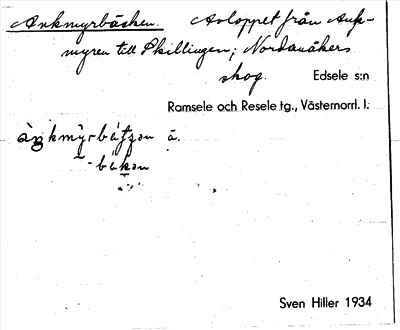 Ankmyrbäcken. Avloppet från Ank-
myren till Skillingen; Nordanåkers
skog. Edsele s:n
Ramsele och Resele tg., Västernorrl. l.
ä.
Sven Hiller 1934